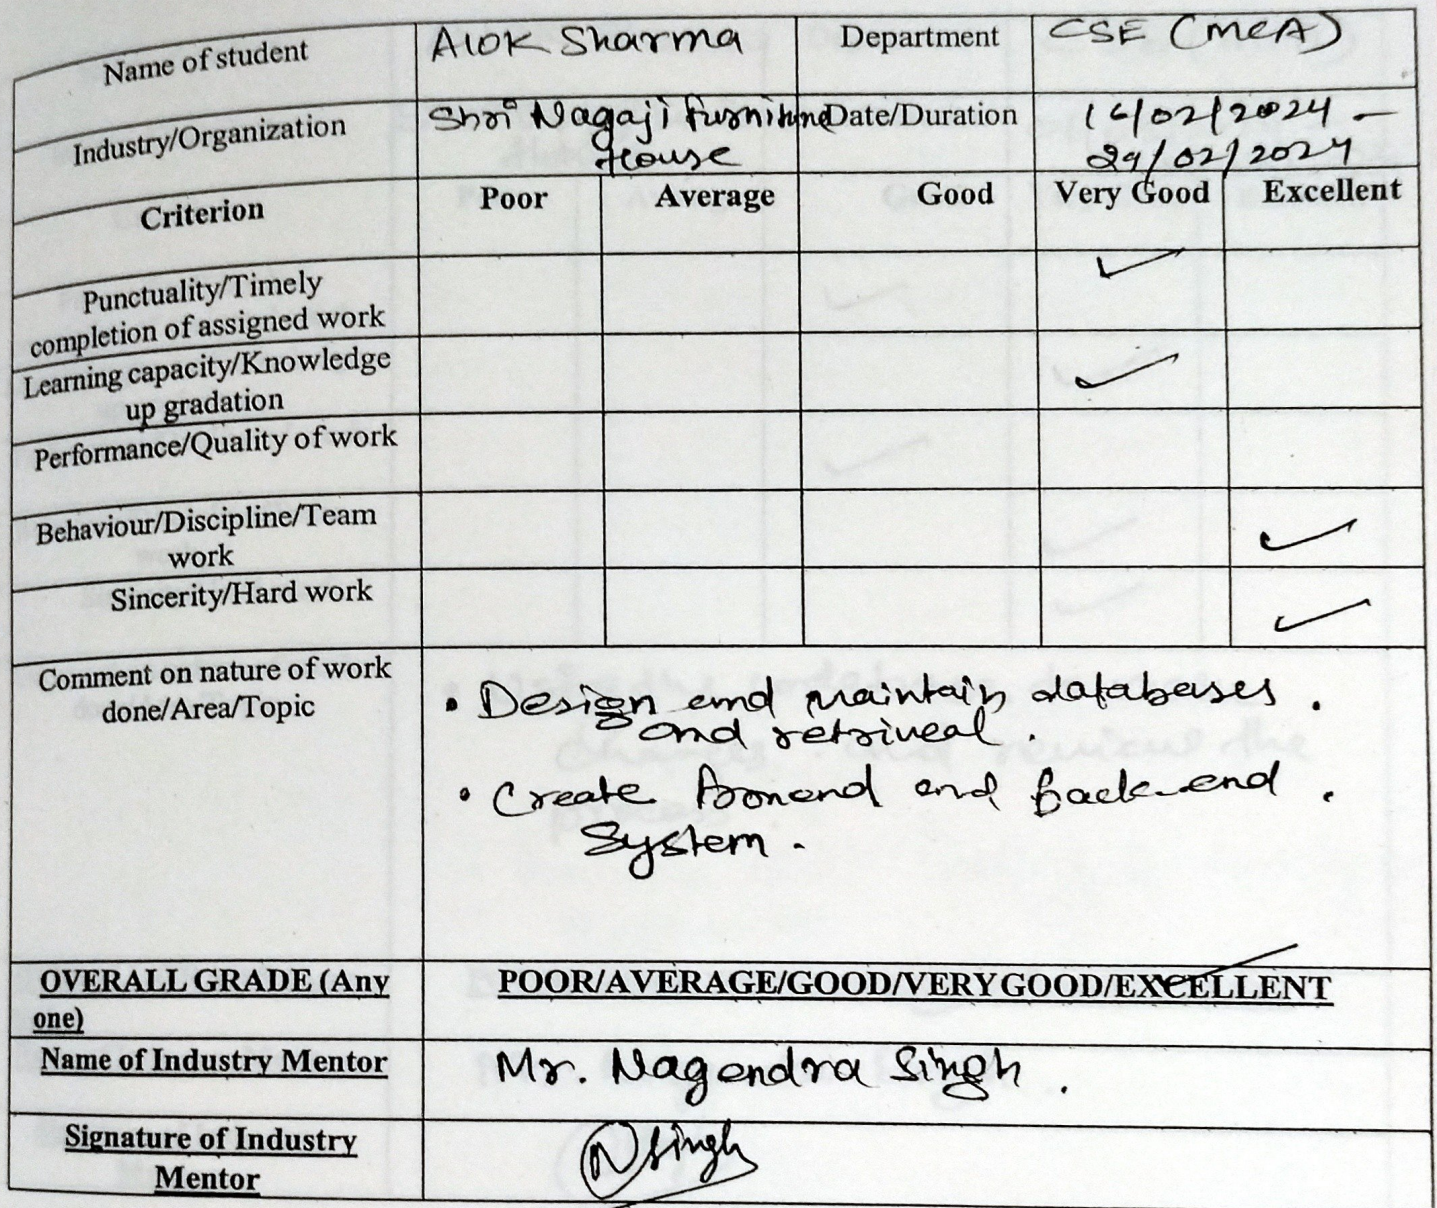 Name of student Alok Sharma Department CSE (MCA)
Industry/Organization Shri Nagaji furniture Date/Duration 16/02/2024 -
House 29/02/2024
Criterion Poor Average Good Very Good Excellent
Punctuality/Timely ✓
completion of assigned work
Learning capacity/Knowledge ✓
up gradation
Performance/Quality of work
Behaviour/Discipline/Team ✓
work
Sincerity/Hard work ✓
Comment on nature of work
done/Area/Topic
• Design and maintain databases .
and retriveal .
• Create fronend and back-end .
System .
OVERALL GRADE (Any POOR/AVERAGE/GOOD/VERY GOOD/EXCELLENT
one)
Name of Industry Mentor Mr. Nagendra Singh .
Signature of Industry NSingh
Mentor